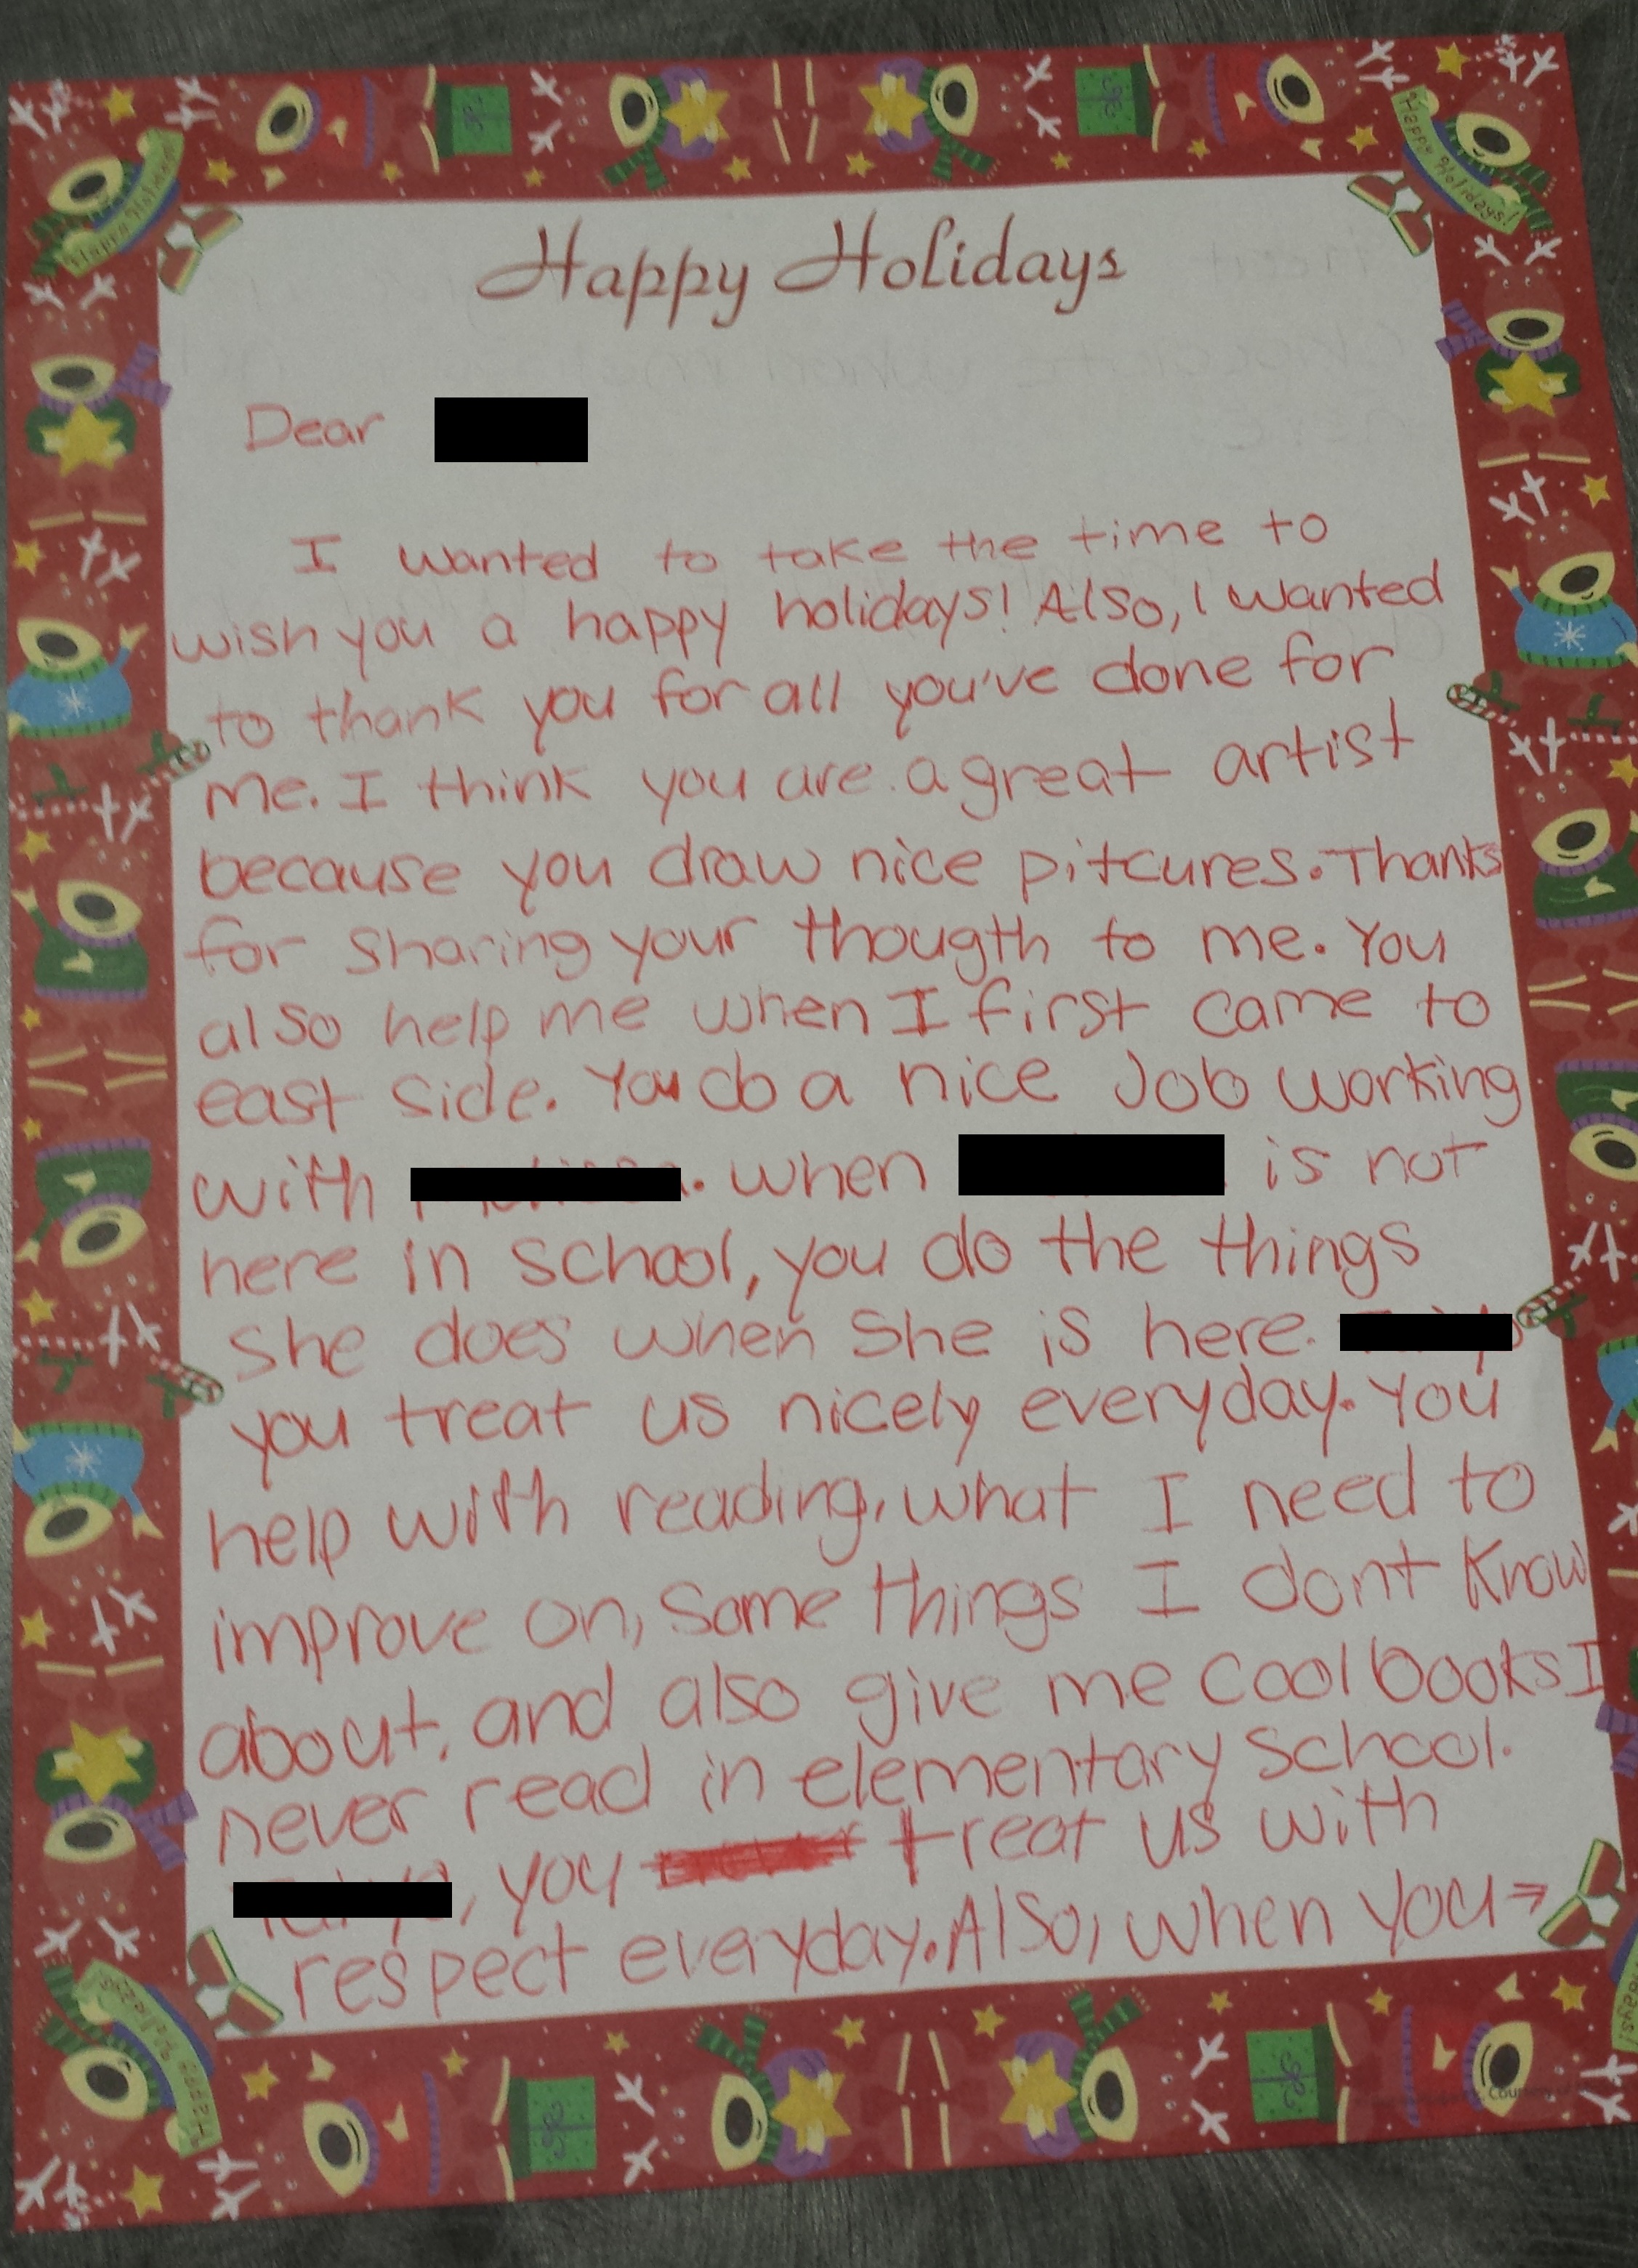 Happy Holidays!
Happy Holidays!
Happy Holidays
Dear
I wanted to take the time to
wish you a happy holidays! Also, I wanted
to thank you for all you've done for
me. I think you are a great artist
because you draw nice pitcures. Thanks
for sharing your thougth to me. You
also help me when I first came to
east side. You do a nice Job working
with . when is not
here in school, you do the things
she does when she is here.
you treat us nicely everyday. You
help with reading, what I need to
improve on, some things I dont know
about, and also give me cool books I
never read in elementary school.
, you treat us with
respect everyday. Also, when you →
Happy Holidays!